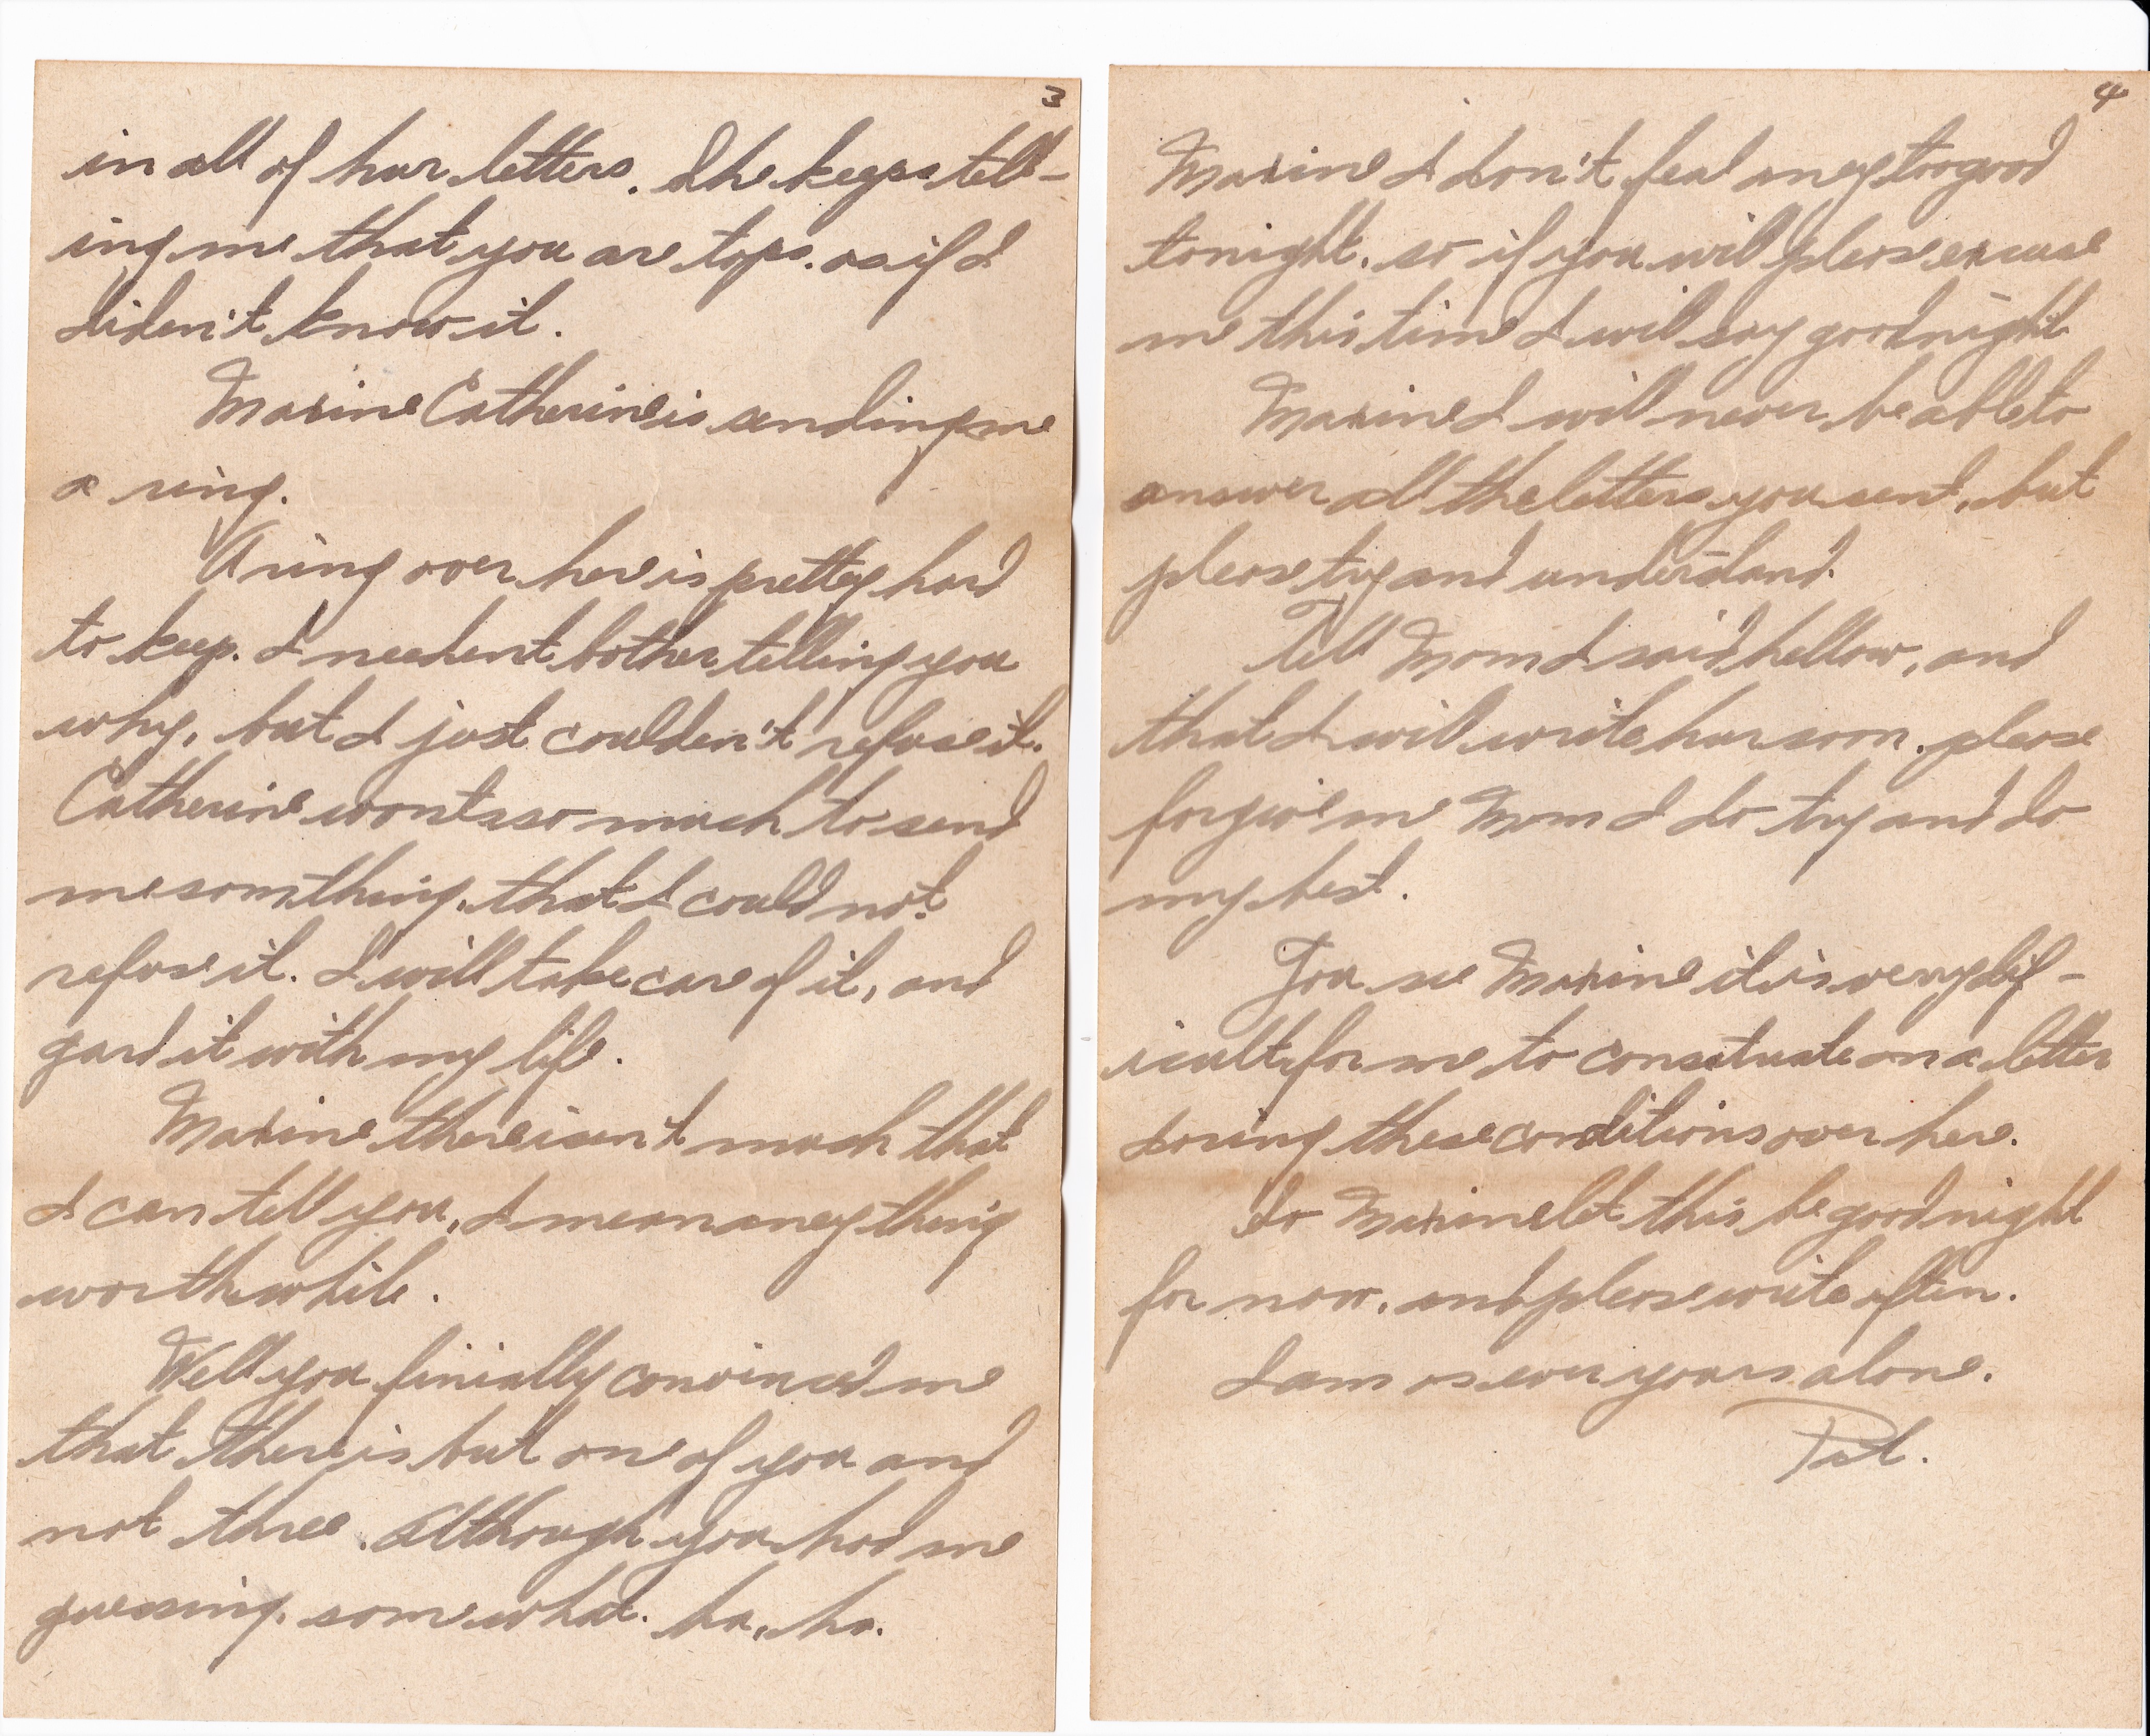 3
in all of hur letters. She keeps tell-
ing me that you are tops. as if I
diden't know it.
Maxine Catherine is sending me
a ring.
A ring over here is pretty hard
to keep. I needent bother telling you
why, but I just coulden't refuse it.
Catherine wonts so much to send
me somthing, that I could not
refuse it. I will take care of it, and
gard it with my life.
Maxine there isen't much that
I can tell you, I mean aneything
worth while.
Well you finially convinced me
that there is but one of you and
not three. Although you had me
guessing. somewhat. ha, ha.
4
Maxine I don't feal aney too good
tonight. so if you will please excuse
me this time I will say goodnight
Maxine I will never be able to
answer all the letters you sent, but
please try and understand.
Tell Mom I said hellow, and
that I will write hur soon. please
forgive me Mom I do try and do
my best.
You see Maxine it is very dif-
icult for me to consituate on a letter
doring these conditions over here.
So Maxine let this be goodnight
for now. and please write often.
I am as ever yours alone.
Pat.